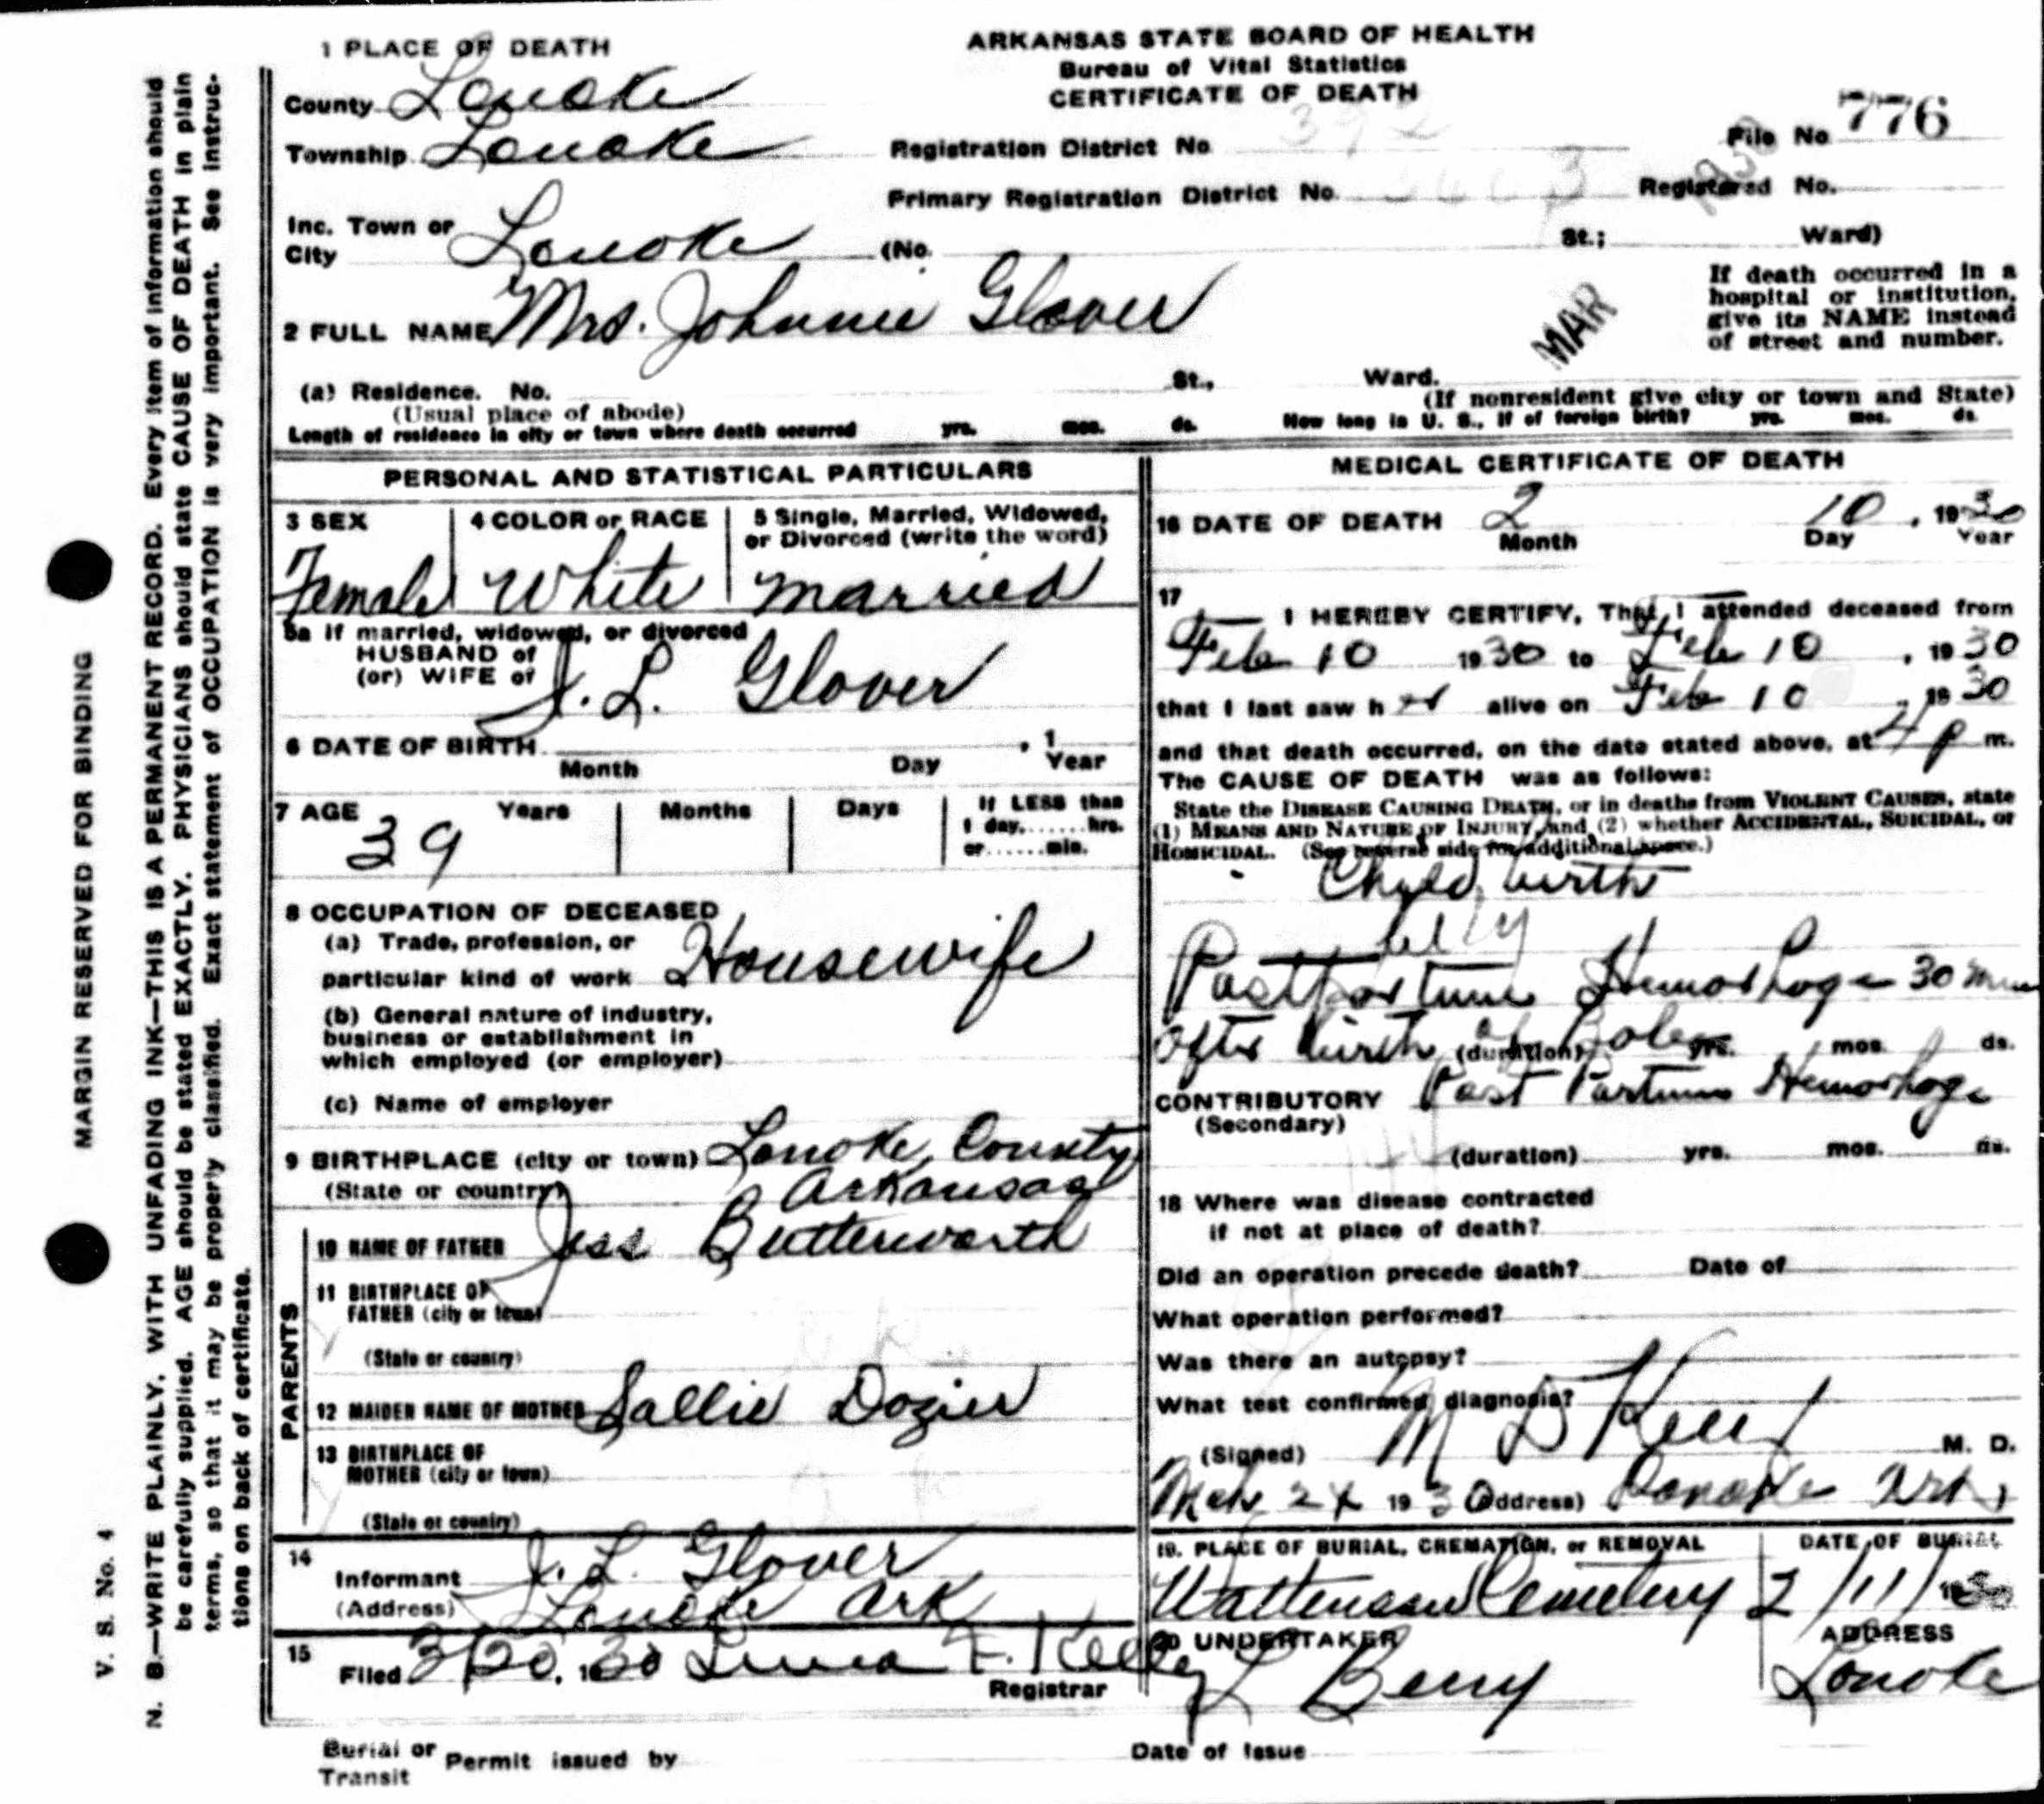 1 PLACE OF DEATH
ARKANSAS STATE BOARD OF HEALTH
Bureau of Vital Statistics
CERTIFICATE OF DEATH
County Lonoke
Township Lonoke
Registration District No 392
File No 776
Primary Registration District No.
Registered No.
1930
Inc. Town or
City Lonoke (No. St.; Ward)
2 FULL NAME Mrs. Johnnie Glover
MAR
If death occurred in a
hospital or institution,
give its NAME instead
of street and number.
(a) Residence. No. St., Ward.
(Usual place of abode)
(If nonresident give city or town and State)
Length of residence in city or town where death occurred yrs. mos. ds. How long in U. S., if of foreign birth? yrs. mos. ds.
PERSONAL AND STATISTICAL PARTICULARS
3 SEX
Female
4 COLOR or RACE
White
5 Single, Married, Widowed,
or Divorced (write the word)
married
5a If married, widowed, or divorced
HUSBAND of
(or) WIFE of J. L. Glover
6 DATE OF BIRTH , 1
Month Day Year
7 AGE Years Months Days
39
If LESS than
1 day,.......hrs.
or......min.
8 OCCUPATION OF DECEASED
(a) Trade, profession, or
particular kind of work Housewife
(b) General nature of industry,
business or establishment in
which employed (or employer)
(c) Name of employer
9 BIRTHPLACE (city or town) Lonoke, County
(State or country) Arkansas
PARENTS
10 NAME OF FATHER Jess Butterworth
11 BIRTHPLACE OF
FATHER (city or town)
(State or country)
12 MAIDEN NAME OF MOTHER Sallie Dozier
13 BIRTHPLACE OF
MOTHER (city or town)
(State or country)
14
Informant J. L. Glover
(Address) Lonoke Ark
15
Filed 3/20, 1930 F. Kelly
Registrar
MEDICAL CERTIFICATE OF DEATH
16 DATE OF DEATH 2 10 , 1930
Month Day Year
17
I HEREBY CERTIFY, That I attended deceased from
Feb 10 1930 to Feb 10 , 1930
that I last saw her alive on Feb 10 , 1930
and that death occurred, on the date stated above, at 4 p m.
The CAUSE OF DEATH was as follows:
State the DISEASE CAUSING DEATH, or in deaths from VIOLENT CAUSES, state
(1) MEANS AND NATURE OF INJURY, and (2) whether ACCIDENTAL, SUICIDAL, or
HOMICIDAL. (See reverse side for additional space.)
Child birth
Postpartum Hemorhage 30 min
after birth of (duration) yrs. mos. ds.
CONTRIBUTORY Post Partum Hemorhage
(Secondary)
(duration) yrs. mos. ds.
18 Where was disease contracted
if not at place of death?
Did an operation precede death? Date of
What operation performed?
Was there an autopsy?
What test confirmed diagnosis?
(Signed) M. D.
1930 (Address) Lonoke Ark,
19. PLACE OF BURIAL, CREMATION, or REMOVAL
Wattensaw Cemetery
DATE OF BURIAL
2/11/1930
20 UNDERTAKER
L Berry
ADDRESS
Lonoke
Burial or
Transit Permit issued by
Date of Issue
MARGIN RESERVED FOR BINDING
V. S. No. 4
N. B.—WRITE PLAINLY, WITH UNFADING INK—THIS IS A PERMANENT RECORD. Every item of information should
be carefully supplied. AGE should be stated EXACTLY. PHYSICIANS should state CAUSE OF DEATH in plain
terms, so that it may be properly classified. Exact statement of OCCUPATION is very important. See instruc-
tions on back of certificate.